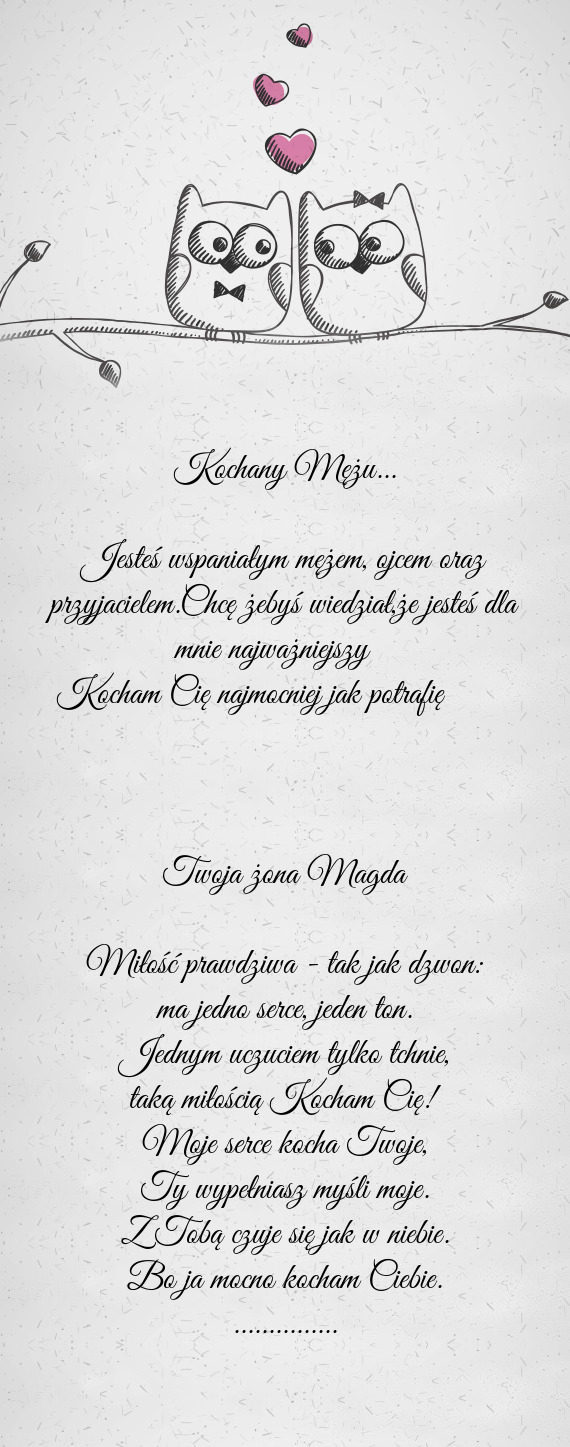 Kochany Mężu...
Jesteś wspaniałym mężem, ojcem oraz
przyjacielem.Chcę żebyś wiedział,że jesteś dla
mnie najważniejszy
Kocham Cię najmocniej jak potrafię
Twoja żona Magda
Miłość prawdziwa - tak jak dzwon:
ma jedno serce, jeden ton.
Jednym uczuciem tylko tchnie,
taką miłością Kocham Cię!
Moje serce kocha Twoje,
Ty wypełniasz myśli moje.
Z Tobą czuje się jak w niebie.
Bo ja mocno kocham Ciebie.
...............